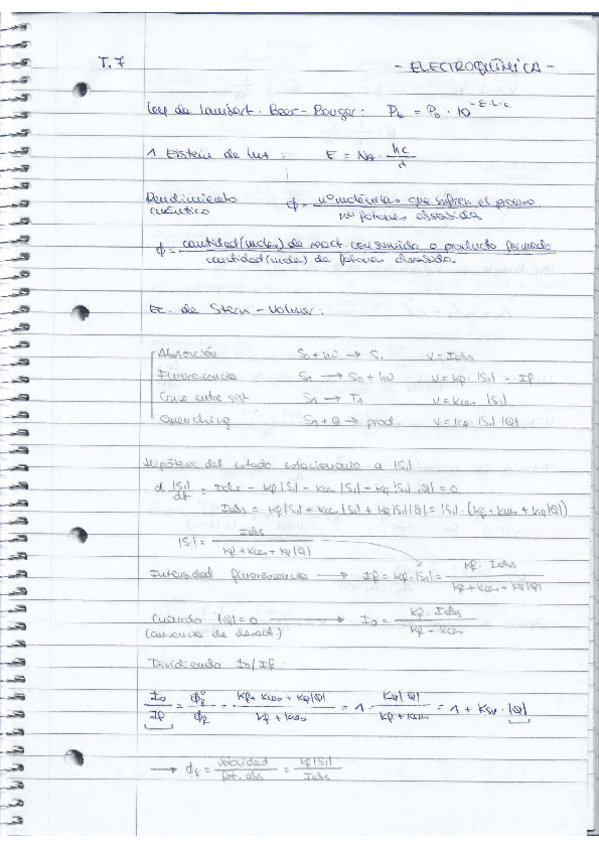 T.7 - ELECTROQUÍMICA -
Ley de Lambert-Beer-Bouger: PL = P0 · 10^-ε·L·c
1 Eistein de luz : E = NA · hc/λ
Rendimiento cuántico ϕ = nº moléculas que sufren el proceso / nº fotones absorbida
ϕ = cantidad (moles) de react. consumido o producto formado / cantidad (moles) de fotones absorbida.
Ec. de Stern-Volmer:
Absorción S0 + hν → S1 v = Iabs
Fluorescencia S1 → S0 + hν v = kf · |S1| = If
Cruce entre sist S1 → T1 v = kces |S1|
Quenching S1 + Q → prod. v = kQ · |S1| |Q|
Hipótesis del estado estacionario a |S1|:
d|S1|/dt = Iabs - kf|S1| - kces|S1| - kQ|S1||Q| = 0
Iabs = kf|S1| + kces|S1| + kQ|S1||Q| = |S1| · (kf + kces + kQ|Q|)
|S1| = Iabs / kf + kces + kQ|Q|
Intensidad fluorescencia → If = kf · |S1| = kf · Iabs / kf + kces + kQ|Q|
Cuando |Q| = 0 → I0 = kf · Iabs / kf + kces
(ausencia de desact.)
Dividiendo I0/If:
I0/If = ϕf°/ϕf = kf + kces + kQ|Q| / kf + kces = 1 · kQ|Q| / kf + kces = 1 + ksv · |Q|
→ ϕf = velocidad / fot. abs = kf|S1| / Iabs